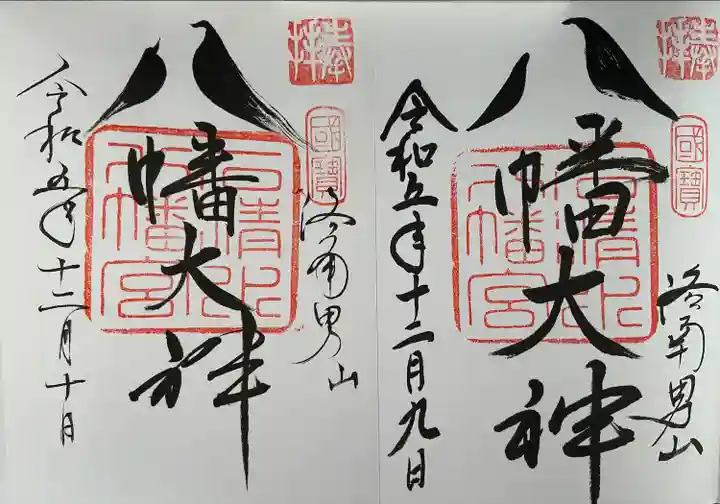 奉拝
國寶
洛南男山
八幡大神
石清水八幡宮
令和五年十二月九日
奉拝
國寶
洛南男山
八幡大神
石清水八幡宮
令和五年十二月十日